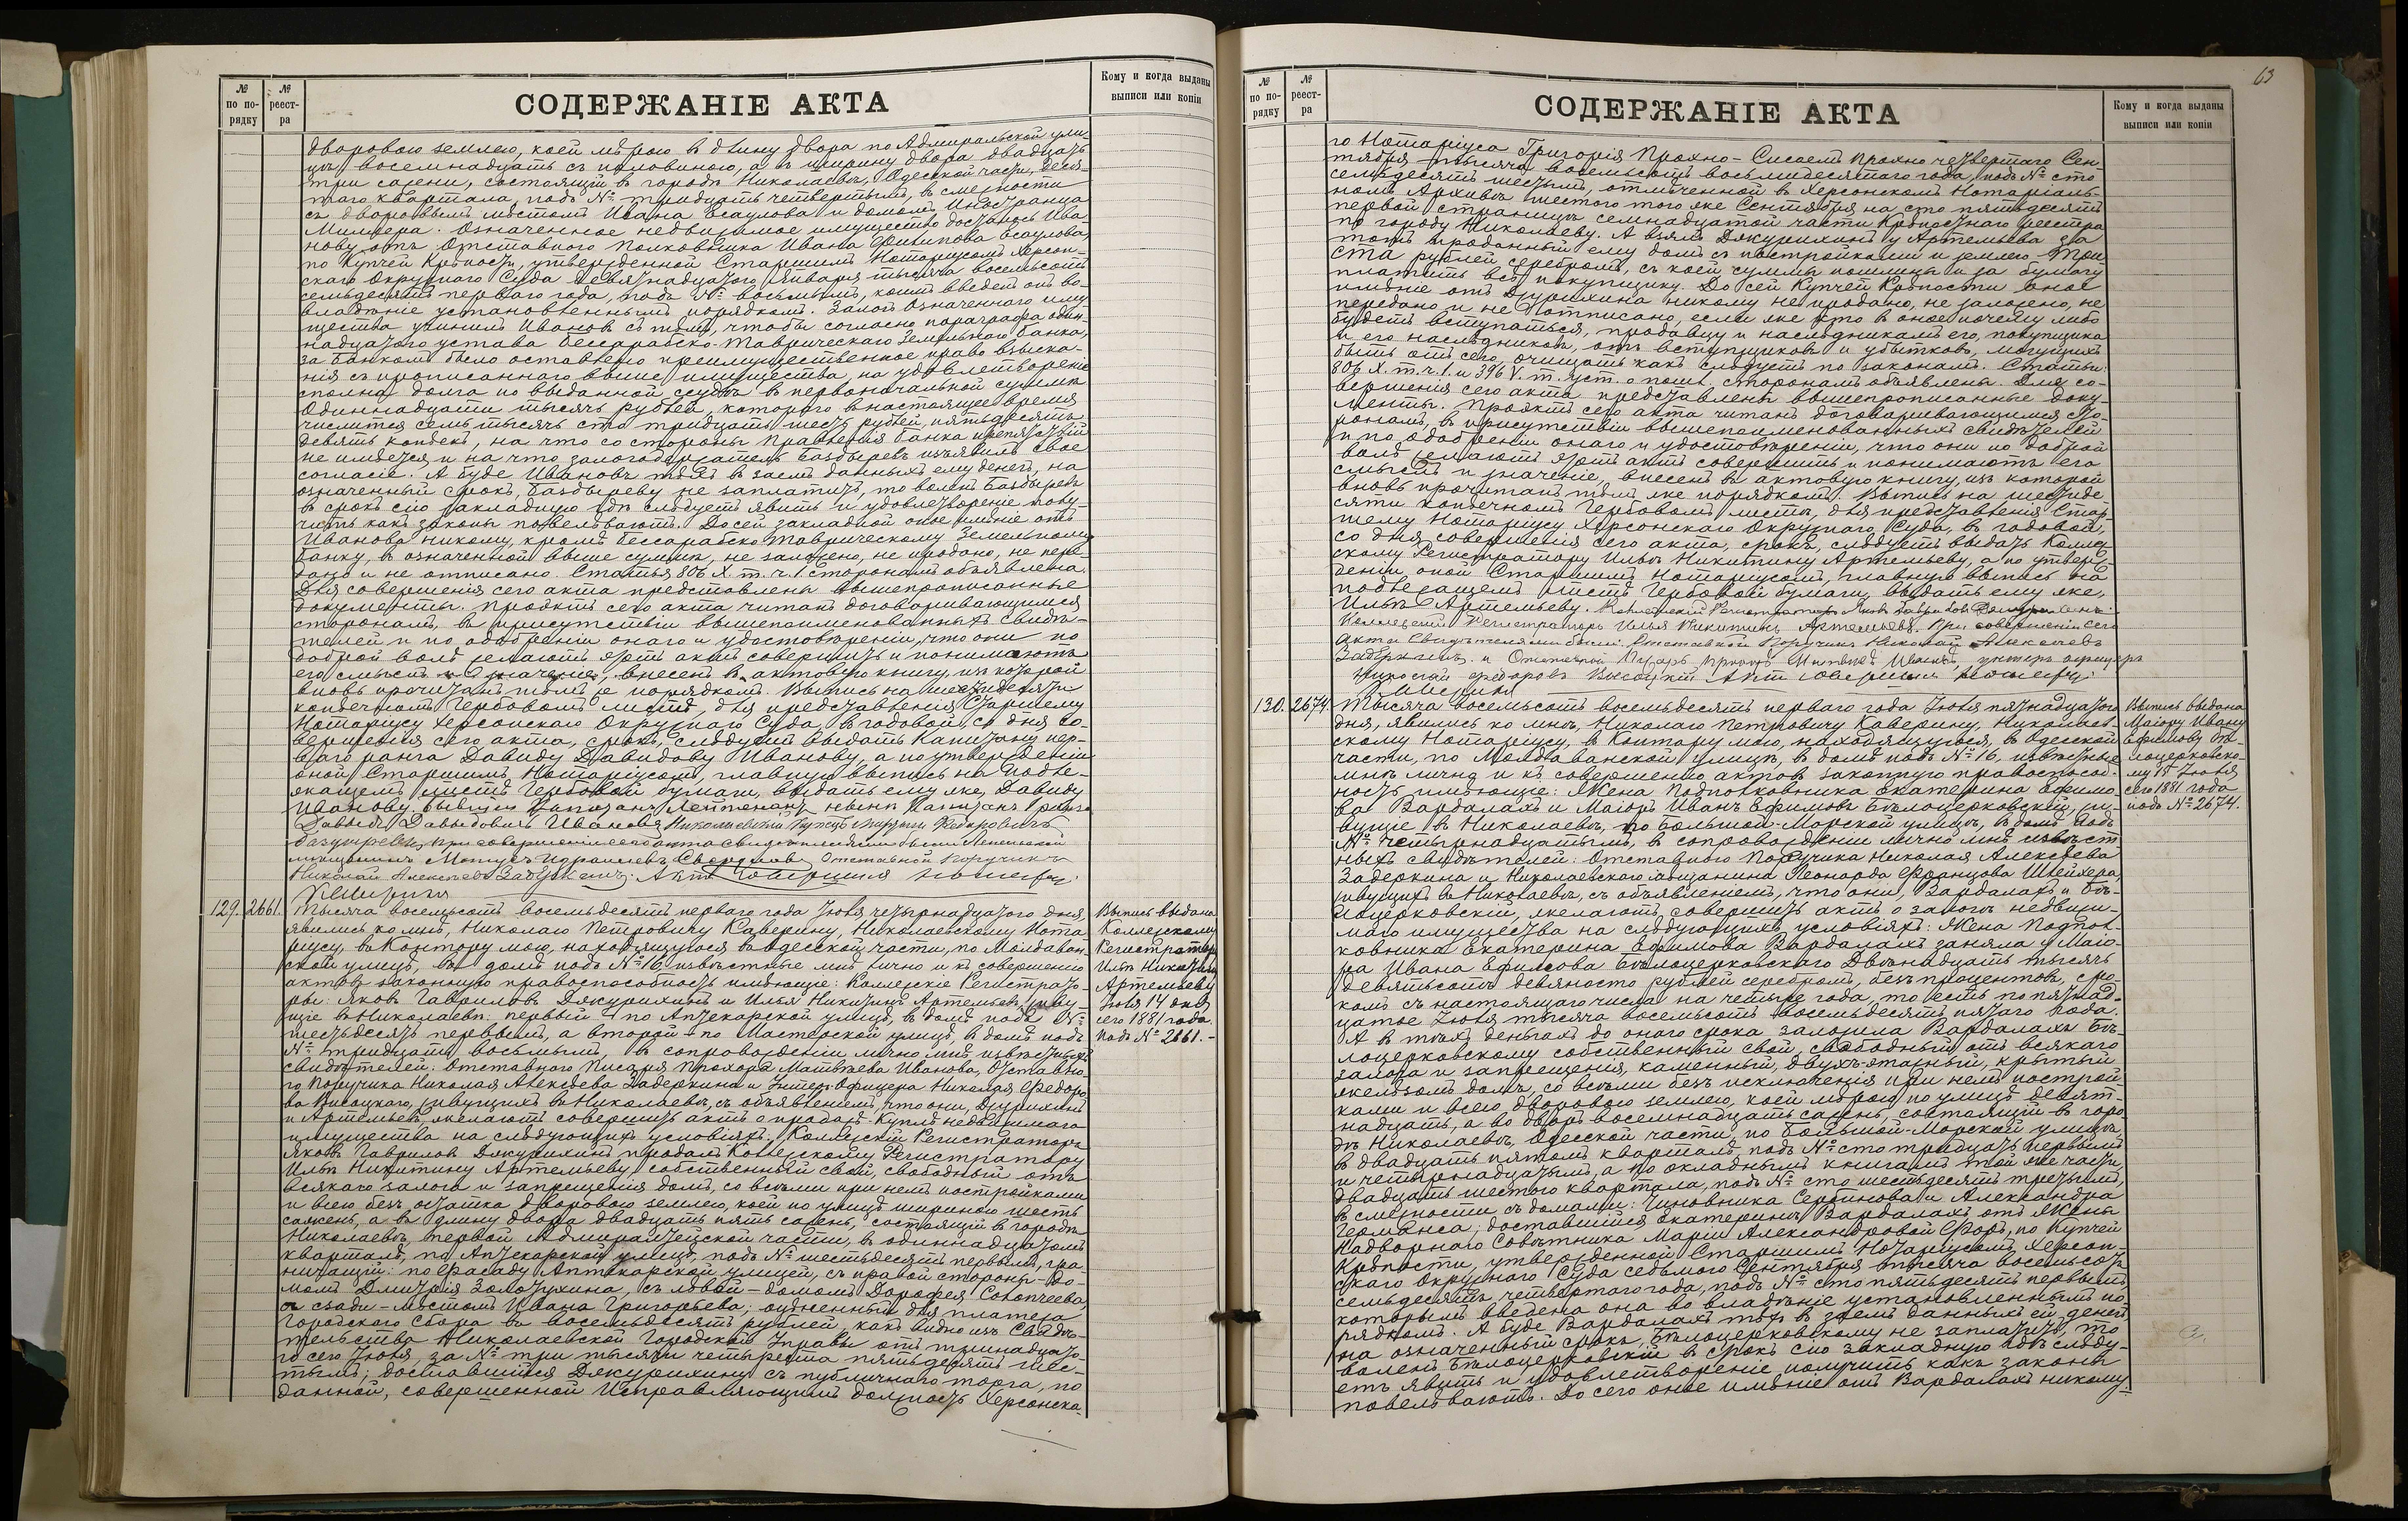 № по по-рядку
№ реест-ра
СОДЕРЖАНІЕ АКТА
Кому и когда выданы выписи или копіи
дворовою землею, коей мѣрою в длину двора по Адмиральской ули-
цѣ восемнадцать съ половиною, а в ширину двора двадцать
три сажени, состоящій в городѣ Николаевѣ, Одесской части,
таго квартала, подъ № тридцать четвертымъ, в смежности
съ дворовымъ мѣстомъ Ивана Есаулова и домомъ Иностранца
Миллера. Означенное недвижимое имущество досталось Ива
нову отъ Отставного Полковника Ивана Филипова Есаулова,
по Купчей Крѣпости, утвержденной Старшимъ Нотаріусомъ Херсон-
скаго Окружнаго Суда девятнадцатого Января тысяча восемьсотъ
семьдесятъ перваго года, подъ № восьмымъ, коимъ введенъ онъ во
владѣніе установленнымъ порядкомъ. Залогъ означеннаго иму
щества учинилъ Ивановъ съ тѣмъ, чтобы согласно параграфа один-
надцатаго устава Бессарабско-Таврическаго Земельнаго Банка,
за Банкомъ было оставлено преимущественное право взыска-
нія съ прописаннаго выше имущества, на удовлетвореніе
сполна долга по выданной ссудѣ в первоначальной суммѣ
Одиннадцати тысячъ рублей, котораго в настоящее время
числится семь тысячъ сто тридцать шесть рублей пятьдесятъ
девять копѣекъ, на что со стороны Правленія Банка препятствій
не имѣется и на что залогодержатель Баздыревъ изъявилъ свое
согласіе. А буде Ивановъ тѣхъ в заемъ данныхъ ему денегъ, на
означенный срокъ, Баздыреву не заплатитъ, то воленъ Баздыревъ
в срокъ сію закладную гдѣ слѣдуетъ явить и удовлетвореніе полу-
чить какъ законы повелѣваютъ. До сей закладной оное имѣніе отъ
Иванова никому, кромѣ Бессарабско Таврическому Земельному
Банку, в означенной выше суммѣ, не заложено, не продано, не пере-
дано и не отписано. Статья 806 X т. ч. 1. сторонамъ объявлена.
Для совершенія сего акта представлены вышепрописанные
документы. Проэктъ сего акта читанъ договаривающимся
сторонамъ, в присутствіи вышепоименованныхъ свидѣ-
телей и по одобреніи онаго и удостовѣреніи, что они по
доброй волѣ желаютъ этотъ актъ совершить и понимаютъ
его смыслъ и значеніе, внесенъ в актовую книгу, изъ которой
вновь прочитанъ тѣмъ же порядкомъ. Выпись на шестидесяти
копѣечномъ Гербовомъ листѣ, для представленія Старшему
Нотаріусу Херсонскаго Окружнаго Суда, в годовой, со дня со-
вершенія сего акта, срокъ, слѣдуетъ выдать Капитану пер-
ваго ранга Давиду Давидову Иванову, а по утвержденіи
оной Старшимъ Нотаріусомъ, главную выпись на подле-
жащемъ листѣ Гербовой бумаги, выдать ему же, Давиду
Иванову. Бывшій Капитанъ Лейтенантъ нынѣ Капитанъ 1 ранга
Давыдъ Давыдовичъ Ивановъ Николаевскій Купецъ Федоровичъ
Баздыревъ при совершеніи сего акта свидѣтелями были
мѣщанинъ Свердловъ Отставной Поручикъ
Николай Алексѣевъ Задеркинъ. Актъ совершилъ Нотаріусъ
Н. Каверинъ
129. 2661. Тысяча восемьсотъ восемьдесятъ перваго года Іюля четырнадцатого дня,
явились ко мнѣ, Николаю Петровичу Каверину, Николаевскому Нота
ріусу, в Контору мою, находящуюся в Одесской части, по Молдаван
ской улицѣ, в домѣ подъ № 16, извѣстные мнѣ лично и къ совершенію
актовъ законную правоспособность имѣющіе: Коллежскіе Регистрато-
ры: Яковъ Гавриловъ Джурихинъ и Илья Никитинъ Артемьевъ, живу-
щіе в Николаевѣ: первый - по Аптекарской улицѣ, в домѣ подъ №
шестьдесятъ первымъ, а второй - по Мастерской улицѣ, в домѣ подъ
№ тридцать восьмымъ, в сопровожденіи лично мнѣ извѣстныхъ
свидѣтелей: Отставного Писаря Прохора Матвѣева Иванова, Отставно-
го Поручика Николая Алексѣева Задеркина и Унтеръ-Офицера Николая Федоро
ва Висоцкаго, живущихъ в Николаевѣ, съ объявленіемъ, что они, Джурихинъ
и Артемьевъ, желаютъ совершить актъ о продажѣ-Куплѣ недвижимаго
имущества на слѣдующихъ условіяхъ: Коллежскій Регистраторъ
Яковъ Гавриловъ Джурихинъ продалъ Коллежскому Регистратору
Ильѣ Никитину Артемьеву собственный свой, свободный отъ
всякаго залога и запрещенія домъ, со всѣми при немъ постройками
и всею безъ остатка дворовою землею, коей по улицѣ шириною шесть
сажень, а в длину двора двадцать пять сажень, состоящій в городѣ
Николаевѣ, первой Адмиралтейской части, в одиннадцатомъ
кварталѣ, по Аптекарской улицѣ, подъ № шестьдесятъ первымъ, гра
ничащій: по фасаду Аптекарской улицей, съ правой стороны - до-
момъ Дмитрія Золотухина, съ лѣвой - домомъ Дорофея Соколчеева,
а сзади - мѣстомъ Ивана Григорьева; оцѣненный для платежа
Городского Сбора в восемьдесятъ рублей, какъ видно изъ Свидѣ-
тельства Николаевской Городской Управы отъ тринадцато
го сего Іюля, за № три тысячи четыреста пятьдесятъ шес-
тымъ; доставшійся Джурихину съ публичнаго торга, по
данной, совершенной Исправляющимъ должность Херсонска-
Выпись выдана
Коллежскому
Регистратору
Ильѣ Никитину
Артемьеву
Іюля 14 дня
сего 1881 года.
подъ № 2661.
63
№ по по-рядку
№ реест-ра
СОДЕРЖАНІЕ АКТА
Кому и когда выданы выписи или копіи
го Нотаріуса Григорія Прохно четвертаго Сен
тября тысяча восемьсотъ восьмидесятаго года, подъ № сто
семьдесятъ шестымъ, отмѣченной в Херсонскомъ Нотаріаль-
номъ Архивѣ шестого того же Сентября на сто пятьдесятъ
первой страницѣ семнадцатой части Крѣпостнаго реестра
по городу Николаеву. А взялъ Джурихинъ у Артемьева за
тотъ проданный ему домъ съ постройками и землею Три
ста рублей серебромъ, съ коей суммы пошлины и за бумагу
платить все покупщику. До сей Купчей Крѣпости оное
имѣніе отъ Джурихина никому не продано, не заложено, не
передано и не отписано, если же кто в оное почему либо
будетъ вступаться, продавцу и наслѣдникамъ его, покупщика
и его наслѣдниковъ, отъ вступщиковъ и убытковъ, могущихъ
быть отъ сего, очищать какъ слѣдуетъ по законамъ. Статьи:
806 X. т. ч. 1. и 396 V. т. Уст. о пошл. сторонамъ объявлены. Для со-
вершенія сего акта представлены вышепрописанные доку-
менты. Проэктъ сего акта читанъ договаривающимся сто-
ронамъ, в присутствіи вышепоименованныхъ свидѣтелей
и по одобреніи онаго и удостовѣреніи, что они по доброй
волѣ желаютъ этотъ актъ совершить и понимаютъ его
смыслъ и значеніе, внесенъ в актовую книгу, изъ которой
вновь прочитанъ тѣмъ же порядкомъ. Выпись на шестиде-
сяти копѣечномъ Гербовомъ листѣ, для представленія Стар-
шему Нотаріусу Херсонскаго Окружнаго Суда, в годовой,
со дня совершенія сего акта, срокъ, слѣдуетъ выдать Коллеж-
скому Регистратору Ильѣ Никитину Артемьеву, а по утверж-
деніи оной Старшимъ Нотаріусомъ, главную выпись на
подлежащемъ листѣ Гербовой бумаги, выдать ему же,
Ильѣ Артемьеву. Коллежскій Регистраторъ Яковъ Гавриловъ Джурихинъ.
Коллежскій Регистраторъ Илья Никитинъ Артемьевъ. При совершеніи сего
акта свидѣтелями были: Отставной Поручикъ Николай Алексѣевъ
Задеркинъ. и Отставной Писарь Прохоръ Матвѣевъ Ивановъ, унтеръ офицеръ
Николай Федоровъ Висоцкій Актъ совершилъ Нотаріусъ
Н. Каверинъ
130. 2674. Тысяча восемьсотъ восемьдесятъ перваго года Іюля пятнадцатого
дня, явились ко мнѣ, Николаю Петровичу Каверину, Николаев-
скому Нотаріусу, в Контору мою, находящуюся, в Одесской
части, по Молдаванской улицѣ, в домѣ подъ № 16, извѣстные
мнѣ лично и къ совершенію актовъ законную правоспособ-
ность имѣющіе: Жена Подполковника Екатерина Ефимо
ва Вардалахъ и Маіоръ Иванъ Ефимовъ Бѣлоцерковскій, жи-
вущіе в Николаевѣ, по Большой-Морской улицѣ, в домѣ подъ
№ четырнадцатымъ, в сопровожденіи лично мнѣ извѣст
ныхъ свидѣтелей: Отставного Поручика Николая Алексѣева
Задеркина и Николаевскаго мѣщанина Леонарда Францова Штейхера,
живущихъ в Николаевѣ, съ объявленіемъ, что они, Вардалахъ и Бѣ-
лоцерковскій, желаютъ совершить актъ о залогѣ недвижи-
маго имущества на слѣдующихъ условіяхъ: Жена Подпол-
ковника Екатерина Ефимова Вардалахъ заняла у Маіо-
ра Ивана Ефимова Бѣлоцерковскаго Двѣнадцать тысячъ
девятьсотъ девяносто рублей серебромъ, безъ процентовъ, сро-
комъ съ настоящаго числа на четыре года, то есть по пятнад-
цатое Іюля тысяча восемьсотъ восемьдесятъ пятаго года.
А в тѣхъ деньгахъ до онаго срока заложила Вардалахъ Бѣ-
лоцерковскому собственный свой, свободный отъ всякаго
залога и запрещенія, каменный, двухъ-этажный, крытый
желѣзомъ домъ, со всѣми безъ исключенія при немъ построй-
ками и всею дворовою землею, коей мѣрою по улицѣ девят-
надцать, а во дворъ восемнадцать сажень, состоящій в горо
дѣ Николаевѣ, Одесской части, по Большой-Морской улицѣ,
в двадцать пятомъ кварталѣ, подъ № сто тридцать первымъ
и четырнадцатымъ, а по окладнымъ книгамъ той же части,
двадцать шестого квартала, подъ № сто шестьдесятъ третьимъ,
в смежности съ домами: Чиновника Сербинова и Александра
Германса; доставшійся Екатеринѣ Вардалахъ отъ Жены
Надворнаго Совѣтника Маріи Александровой по Купчей
Крѣпости, утвержденной Старшимъ Нотаріусомъ Херсон-
скаго Окружнаго Суда седьмого Сентября тысяча восемьсотъ
семьдесятъ четвертаго года, подъ № сто пятьдесятъ первымъ,
которымъ введена она во владѣніе установленнымъ по-
рядкомъ. А буде Вардалахъ тѣхъ в заемъ данныхъ ей денегъ,
на означенный срокъ, Бѣлоцерковскому не заплатитъ, то
воленъ Бѣлоцерковскій в срокъ сію закладную гдѣ слѣду-
етъ явить и удовлетвореніе получить какъ законы
повелѣваютъ. До сего оное имѣніе отъ Вардалахъ никому
Выпись выдана
Маіору Ивану
Ефимову Бѣ-
лоцерковско-
му 15 Іюля
сего 1881 года
подъ № 2674.